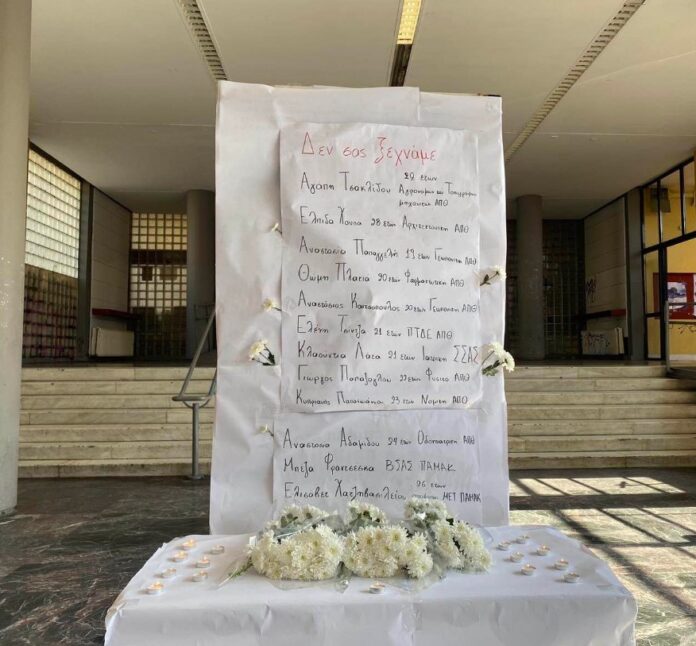 Δεν σας ξεχνάμε
28 ετών
Αγάπη Τσακλίδου Αγρονόμων και Τοπογράφων
μηχανικών ΑΠΘ
Ελπίδα Χούπα 28 ετών Αρχιτεκτονική ΑΠΘ
Αναστασία Παπαγγελή 19 ετών Γεωπονική ΑΠΘ
Θώμη Πλακιά 20 ετών Φαρμακευτική ΑΠΘ
Αναστάσιος Κουτσόπουλος 20 ετών Γεωπονική ΑΠΘ
Ελένη Τσίντζα 21 ετών ΠΤΔΕ ΑΠΘ
Κλαούντια Λάτα 21 ετών Ιατρική ΣΣΑΣ
Γιώργος Παπάζογλου 22 ετών Φυσικό ΑΠΘ
Κυπριανός Παπαϊωάννου 23 ετών Νομική ΑΠΘ
Αναστασία Αδαμίδου 24 ετών Οδοντιατρική ΑΠΘ
Μπέζα Φραντσέσκα ΒΣΑΣ ΠΑΜΑΚ
26 ετών
Ελισάβετ Χατζηβασιλείου ΜΕΤ ΠΑΜΑΚ